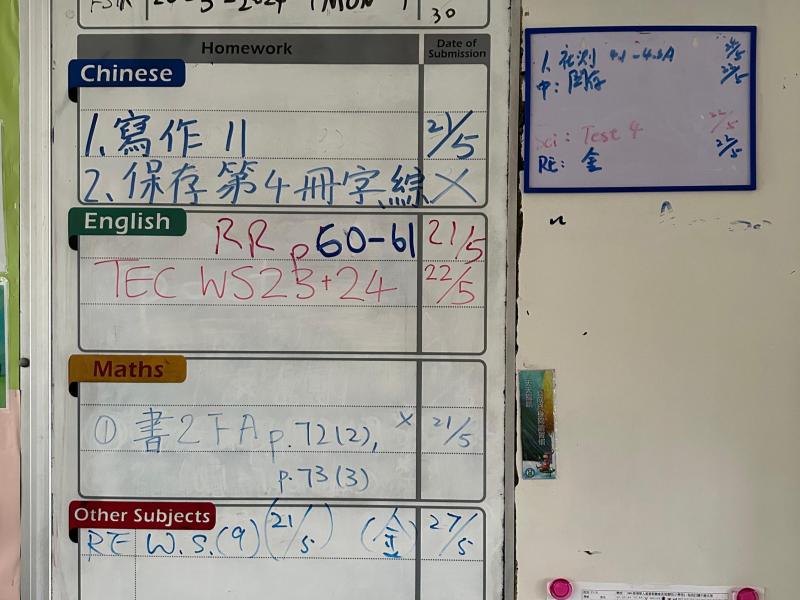 20-5-2024 (MON)
30
Homework
Date of Submission
Chinese
1. 寫作 11 21/5
2. 保存第4冊字綜 X
English
RR p60-61 21/5
TEC WS23+24 22/5
Maths
① 書2下A p.72(2), X 21/5
p.73(3)
Other Subjects
RE W.S.(9) (21/5) (金) 27/5
1. 社測 4.1-4.3A
中: 22/5
Sci: Test 4 22/5
RE: 金 22/5